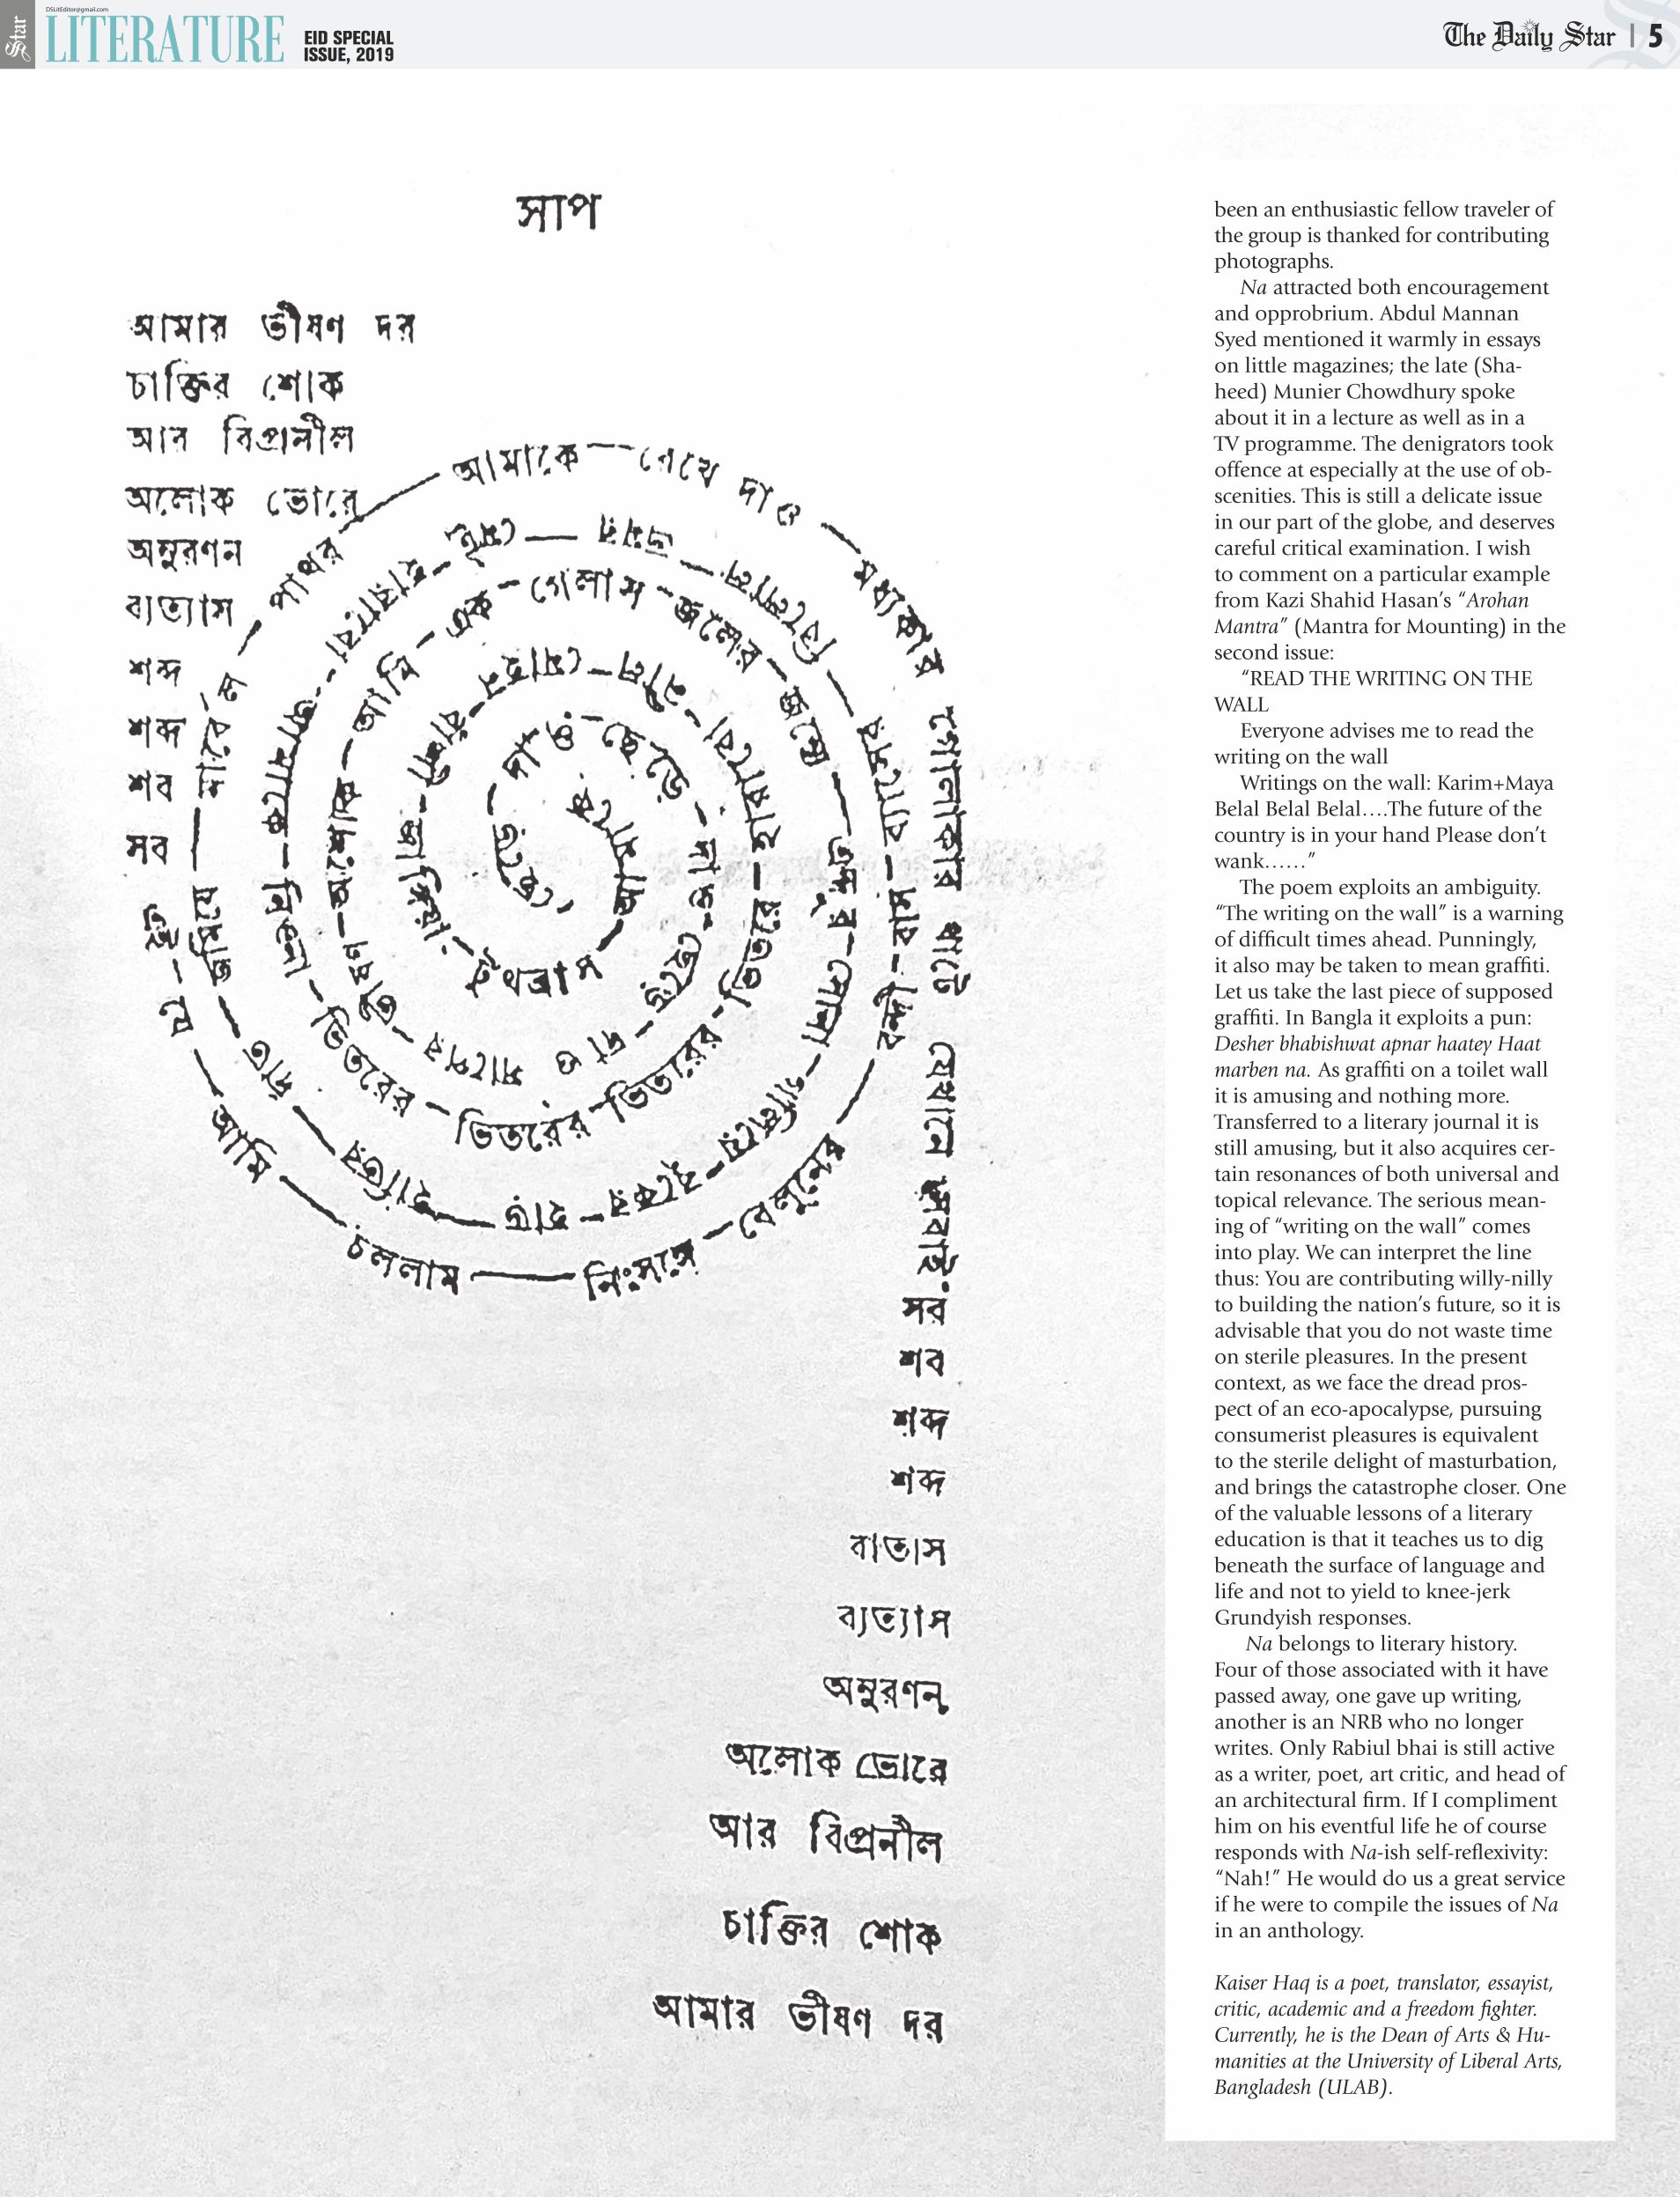 DSLitEditor@gmail.com
Star
LITERATURE
EID SPECIAL
ISSUE, 2019
The Daily Star | 5
সাপ
আমার ভীষণ দর
চাক্তির শোক
আর বিপ্রনীল
অলোক ভোরে
অনুরণন
ব্যত্যাস
শব্দ
শব্দ
শব
সব
এই – যে – আমি – চললাম – নিঃসঙ্গে –
আমাকে – রেখে দাও – মধ্যকার গোলাকার খাটে যেখানে
এক – গেলাস – জলের – জন্যে
ভিতরের – ভিতরের – ভিতরের
সব
শব
শব্দ
শব্দ
বাতাস
ব্যত্যাস
অনুরণন
অলোক ভোরে
আর বিপ্রনীল
চাক্তির শোক
আমার ভীষণ দর
been an enthusiastic fellow traveler of
the group is thanked for contributing
photographs.
Na attracted both encouragement
and opprobrium. Abdul Mannan
Syed mentioned it warmly in essays
on little magazines; the late (Sha-
heed) Munier Chowdhury spoke
about it in a lecture as well as in a
TV programme. The denigrators took
offence at especially at the use of ob-
scenities. This is still a delicate issue
in our part of the globe, and deserves
careful critical examination. I wish
to comment on a particular example
from Kazi Shahid Hasan's “Arohan
Mantra” (Mantra for Mounting) in the
second issue:
“READ THE WRITING ON THE
WALL
Everyone advises me to read the
writing on the wall
Writings on the wall: Karim+Maya
Belal Belal Belal….The future of the
country is in your hand Please don't
wank……”
The poem exploits an ambiguity.
“The writing on the wall” is a warning
of difficult times ahead. Punningly,
it also may be taken to mean graffiti.
Let us take the last piece of supposed
graffiti. In Bangla it exploits a pun:
Desher bhabishwat apnar haatey Haat
marben na. As graffiti on a toilet wall
it is amusing and nothing more.
Transferred to a literary journal it is
still amusing, but it also acquires cer-
tain resonances of both universal and
topical relevance. The serious mean-
ing of “writing on the wall” comes
into play. We can interpret the line
thus: You are contributing willy-nilly
to building the nation's future, so it is
advisable that you do not waste time
on sterile pleasures. In the present
context, as we face the dread pros-
pect of an eco-apocalypse, pursuing
consumerist pleasures is equivalent
to the sterile delight of masturbation,
and brings the catastrophe closer. One
of the valuable lessons of a literary
education is that it teaches us to dig
beneath the surface of language and
life and not to yield to knee-jerk
Grundyish responses.
Na belongs to literary history.
Four of those associated with it have
passed away, one gave up writing,
another is an NRB who no longer
writes. Only Rabiul bhai is still active
as a writer, poet, art critic, and head of
an architectural firm. If I compliment
him on his eventful life he of course
responds with Na-ish self-reflexivity:
“Nah!” He would do us a great service
if he were to compile the issues of Na
in an anthology.
Kaiser Haq is a poet, translator, essayist,
critic, academic and a freedom fighter.
Currently, he is the Dean of Arts & Hu-
manities at the University of Liberal Arts,
Bangladesh (ULAB).